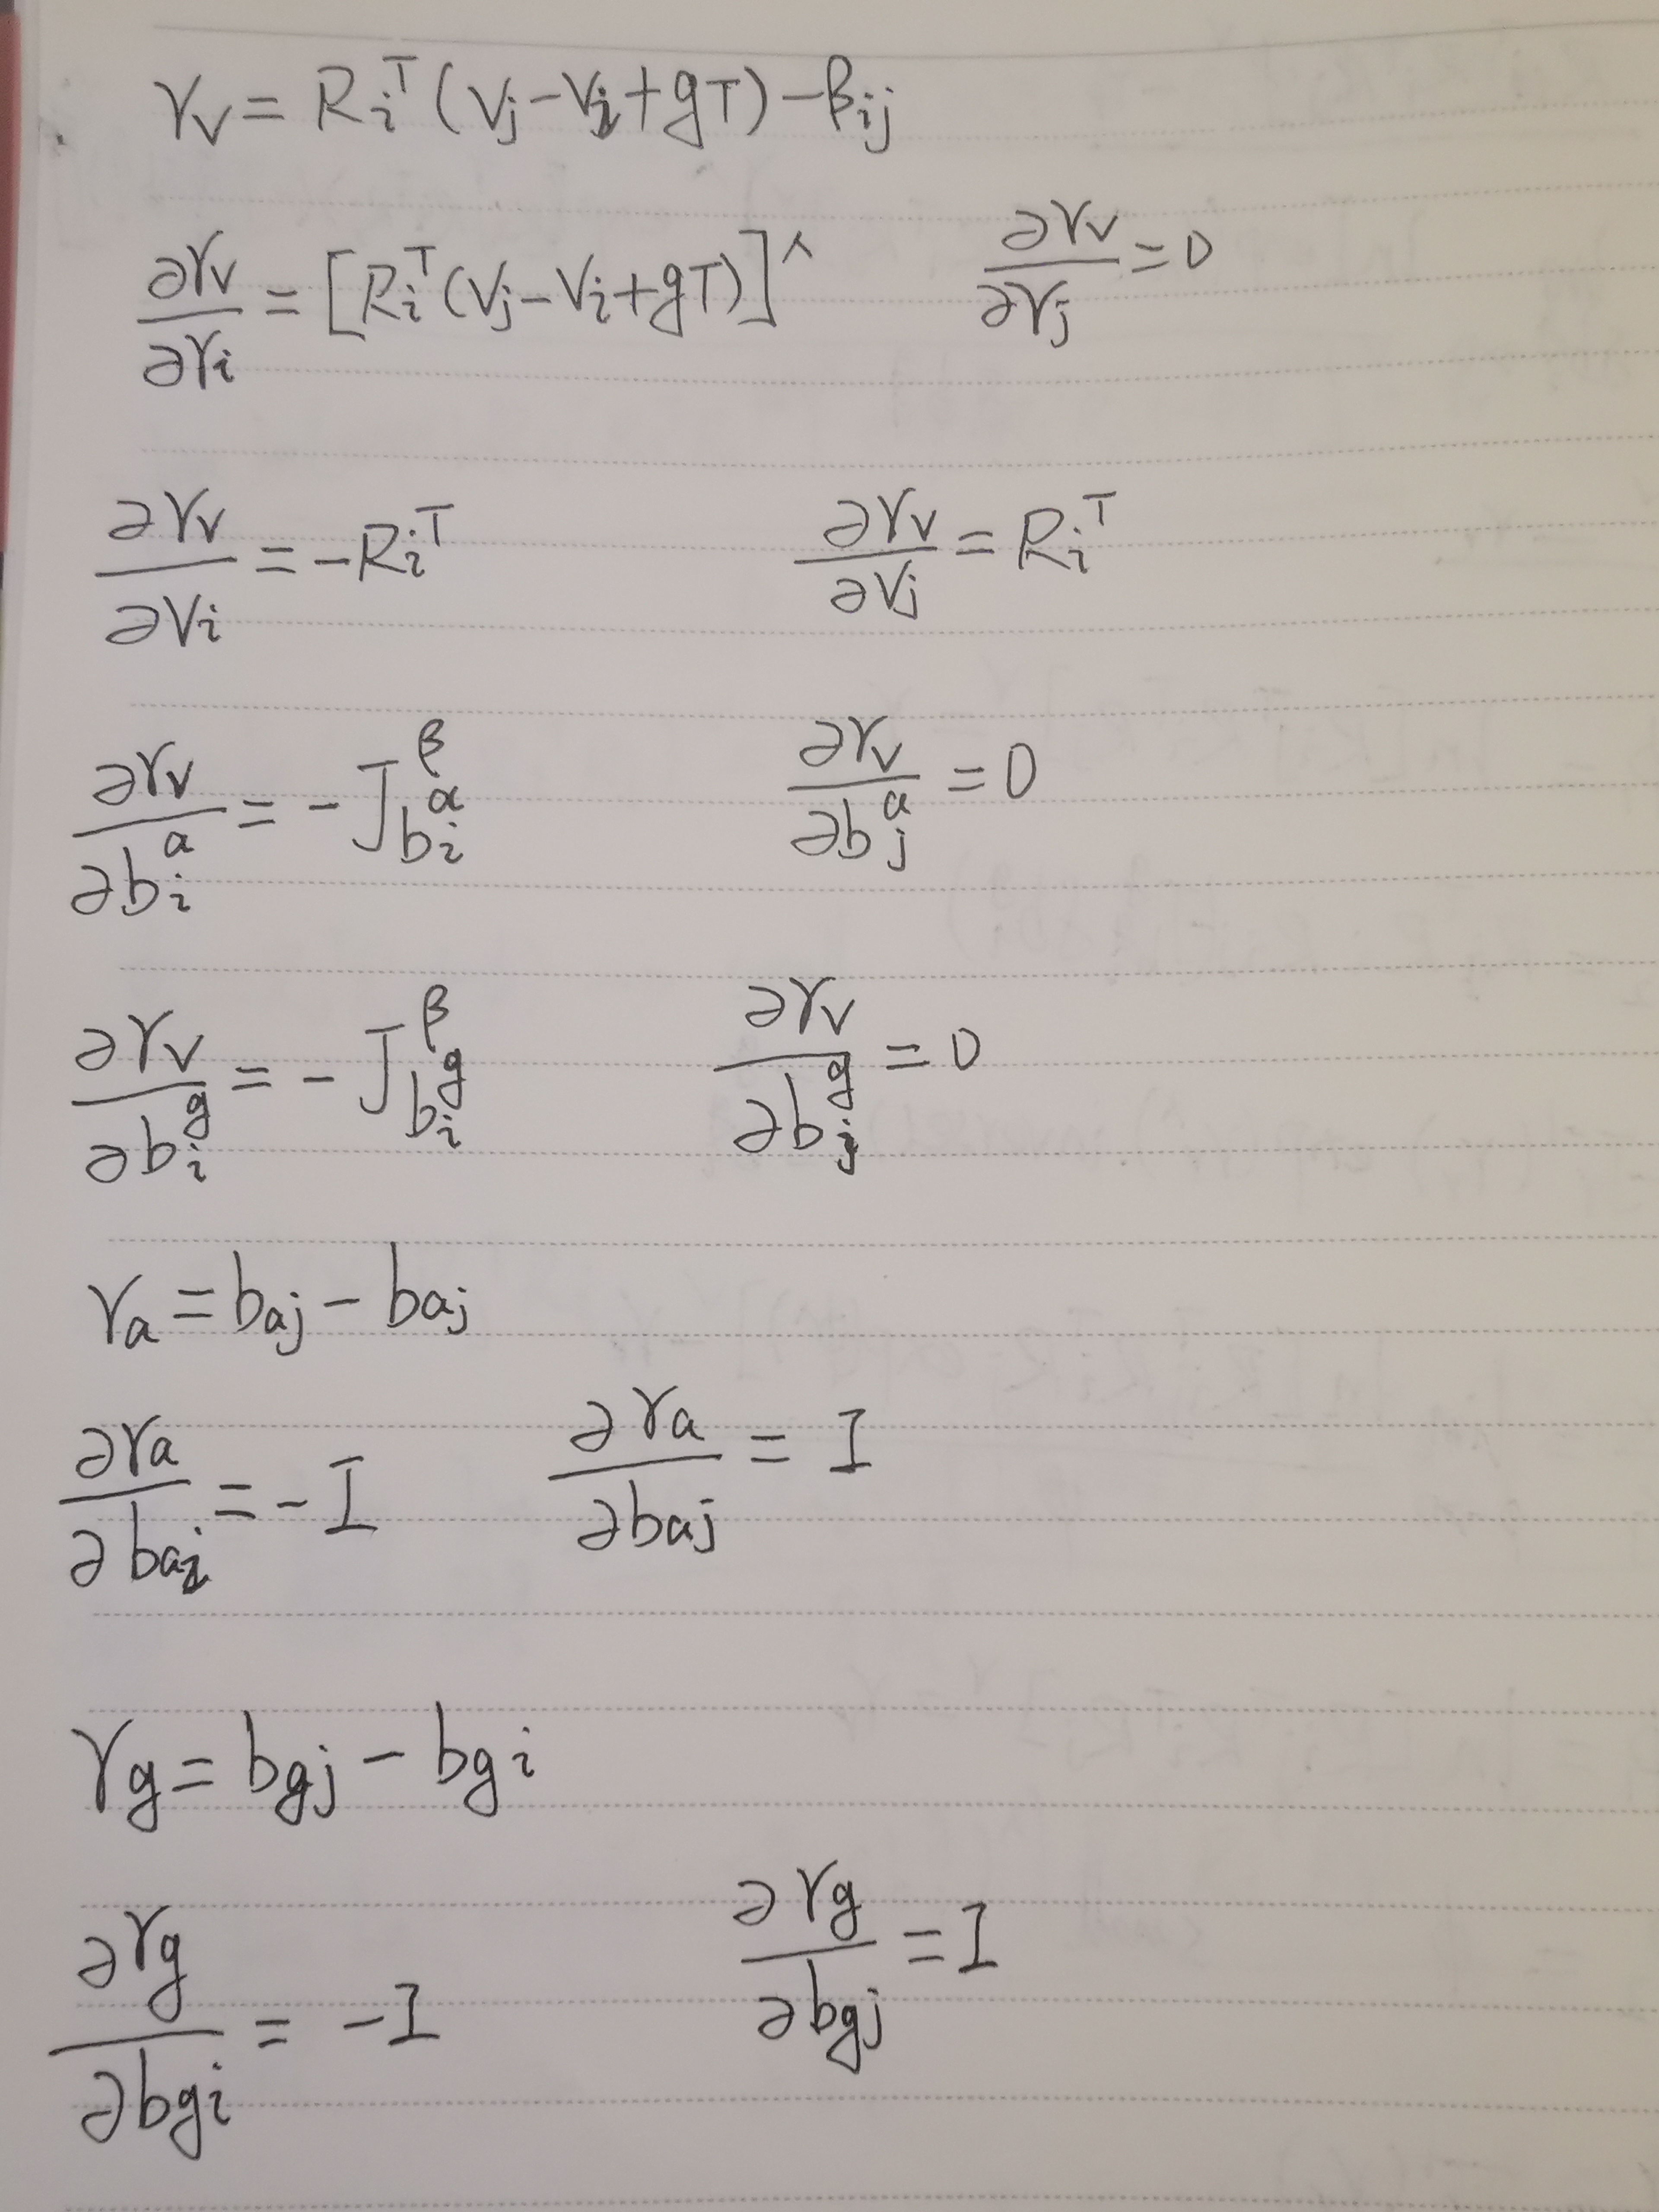 γ_v = R_i^T (v_j - v_i + gT) - β_ij
∂γ_v/∂γ_i = [R_i^T (v_j - v_i + gT)]^∧    ∂γ_v/∂γ_j = 0
∂γ_v/∂v_i = -R_i^T    ∂γ_v/∂v_j = R_i^T
∂γ_v/∂b_i^a = -J_{b_i^a}^β    ∂γ_v/∂b_j^a = 0
∂γ_v/∂b_i^g = -J_{b_i^g}^β    ∂γ_v/∂b_j^g = 0
γ_a = b_aj - b_aj
∂γ_a/∂b_ai = -I    ∂γ_a/∂b_aj = I
γ_g = b_gj - b_gi
∂γ_g/∂b_gi = -I    ∂γ_g/∂b_gj = I